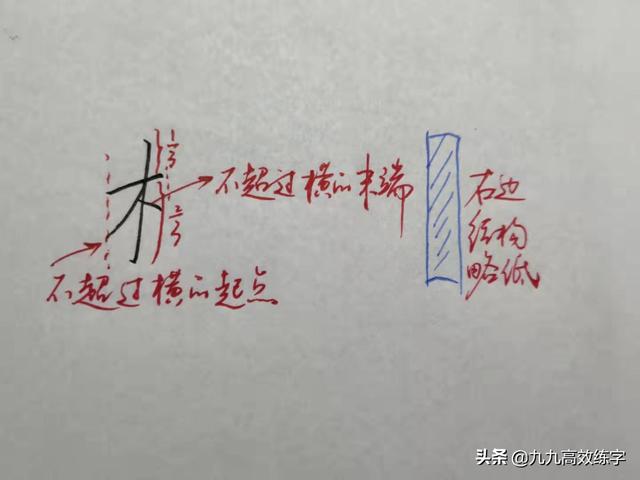 木
1/3
2/3
不超过横的末端
不超过横的起点
右边
结构
略低
头条 @九九高效练字